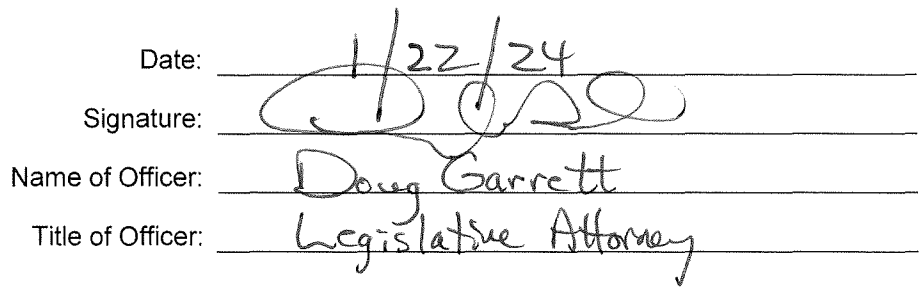 Date: 1/22/24
Signature:
Name of Officer: Doug Garrett
Title of Officer: Legislative Attorney